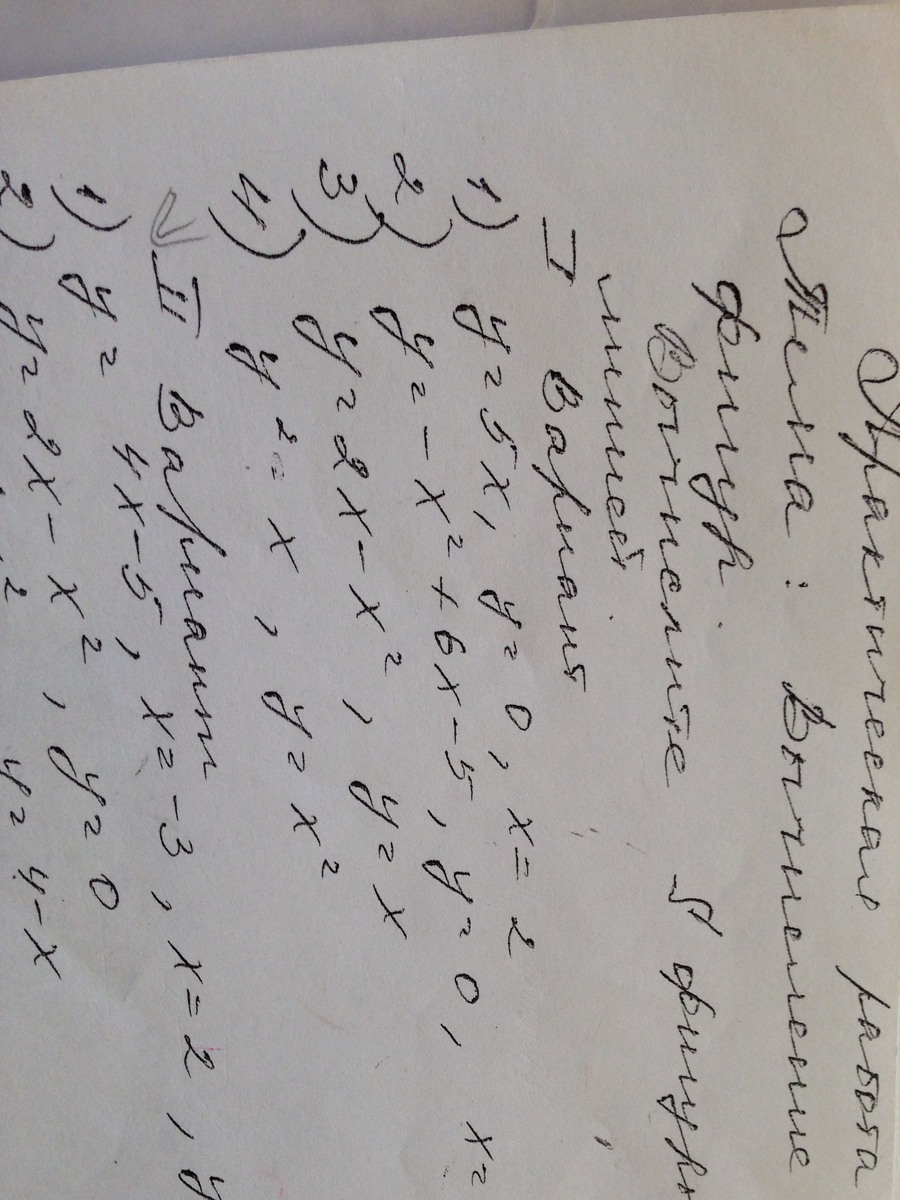 Практическая работа
Тема: Вычисление
фигур.
Вычислите S фигуры
линией.
I Вариант
1) y = 5x, y = 0, x = 2
2) y = -x² + 6x - 5, y = 0, x =
3) y = 2x - x², y = x
4) y² = x, y = x²
II Вариант
1) y = 4x - 5, x = -3, x = 2, y
2) y = 2x - x², y = 0
y = 4 - x